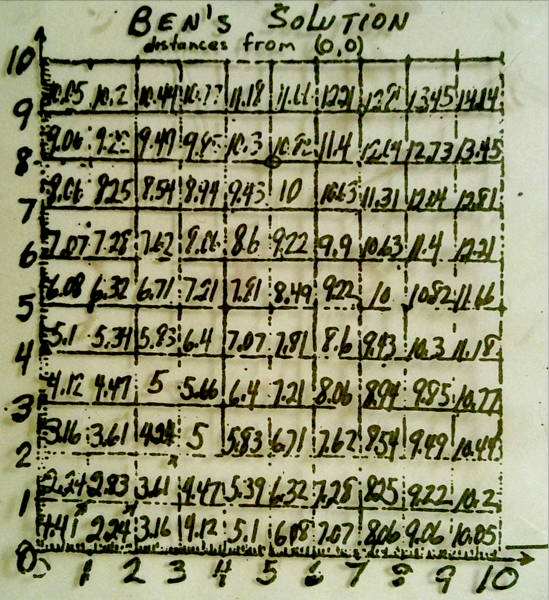 BEN'S SOLUTION
distances from (0,0)
10
10.05 10.2 10.44 10.77 11.18 11.66 12.21 12.81 13.45 14.14
9
9.06 9.49 9.85 10.3 10.82 11.4 12.04 12.73 13.45
8
8.06 8.25 8.54 8.94 9.43 10 10.63 11.31 12.04 12.81
7
7.07 7.28 7.62 8.06 8.6 9.22 9.9 10.63 11.4 12.21
6
6.08 6.32 6.71 7.21 7.81 8.49 9.22 10 10.82 11.66
5
5.1 5.39 5.83 6.4 7.07 7.81 8.6 9.43 10.3 11.18
4
4.12 4.47 5 5.66 6.4 7.21 8.06 8.94 9.85 10.77
3
3.16 3.61 4.24 5 5.83 6.71 7.62 8.54 9.49 10.44
2
2.24 2.83 3.61 4.47 5.39 6.32 7.28 8.25 9.22 10.2
1
1.41 2.24 3.16 4.12 5.1 6.08 7.07 8.06 9.06 10.05
0
0 1 2 3 4 5 6 7 8 9 10